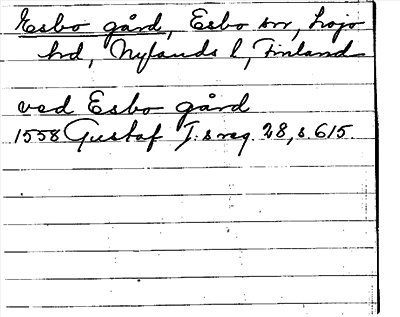 Esbo gård, Esbo sn, Lojo
hd, Nylands l, Finland
ved Esbo gård
1558 Gustaf I:s reg. 28, s. 615.